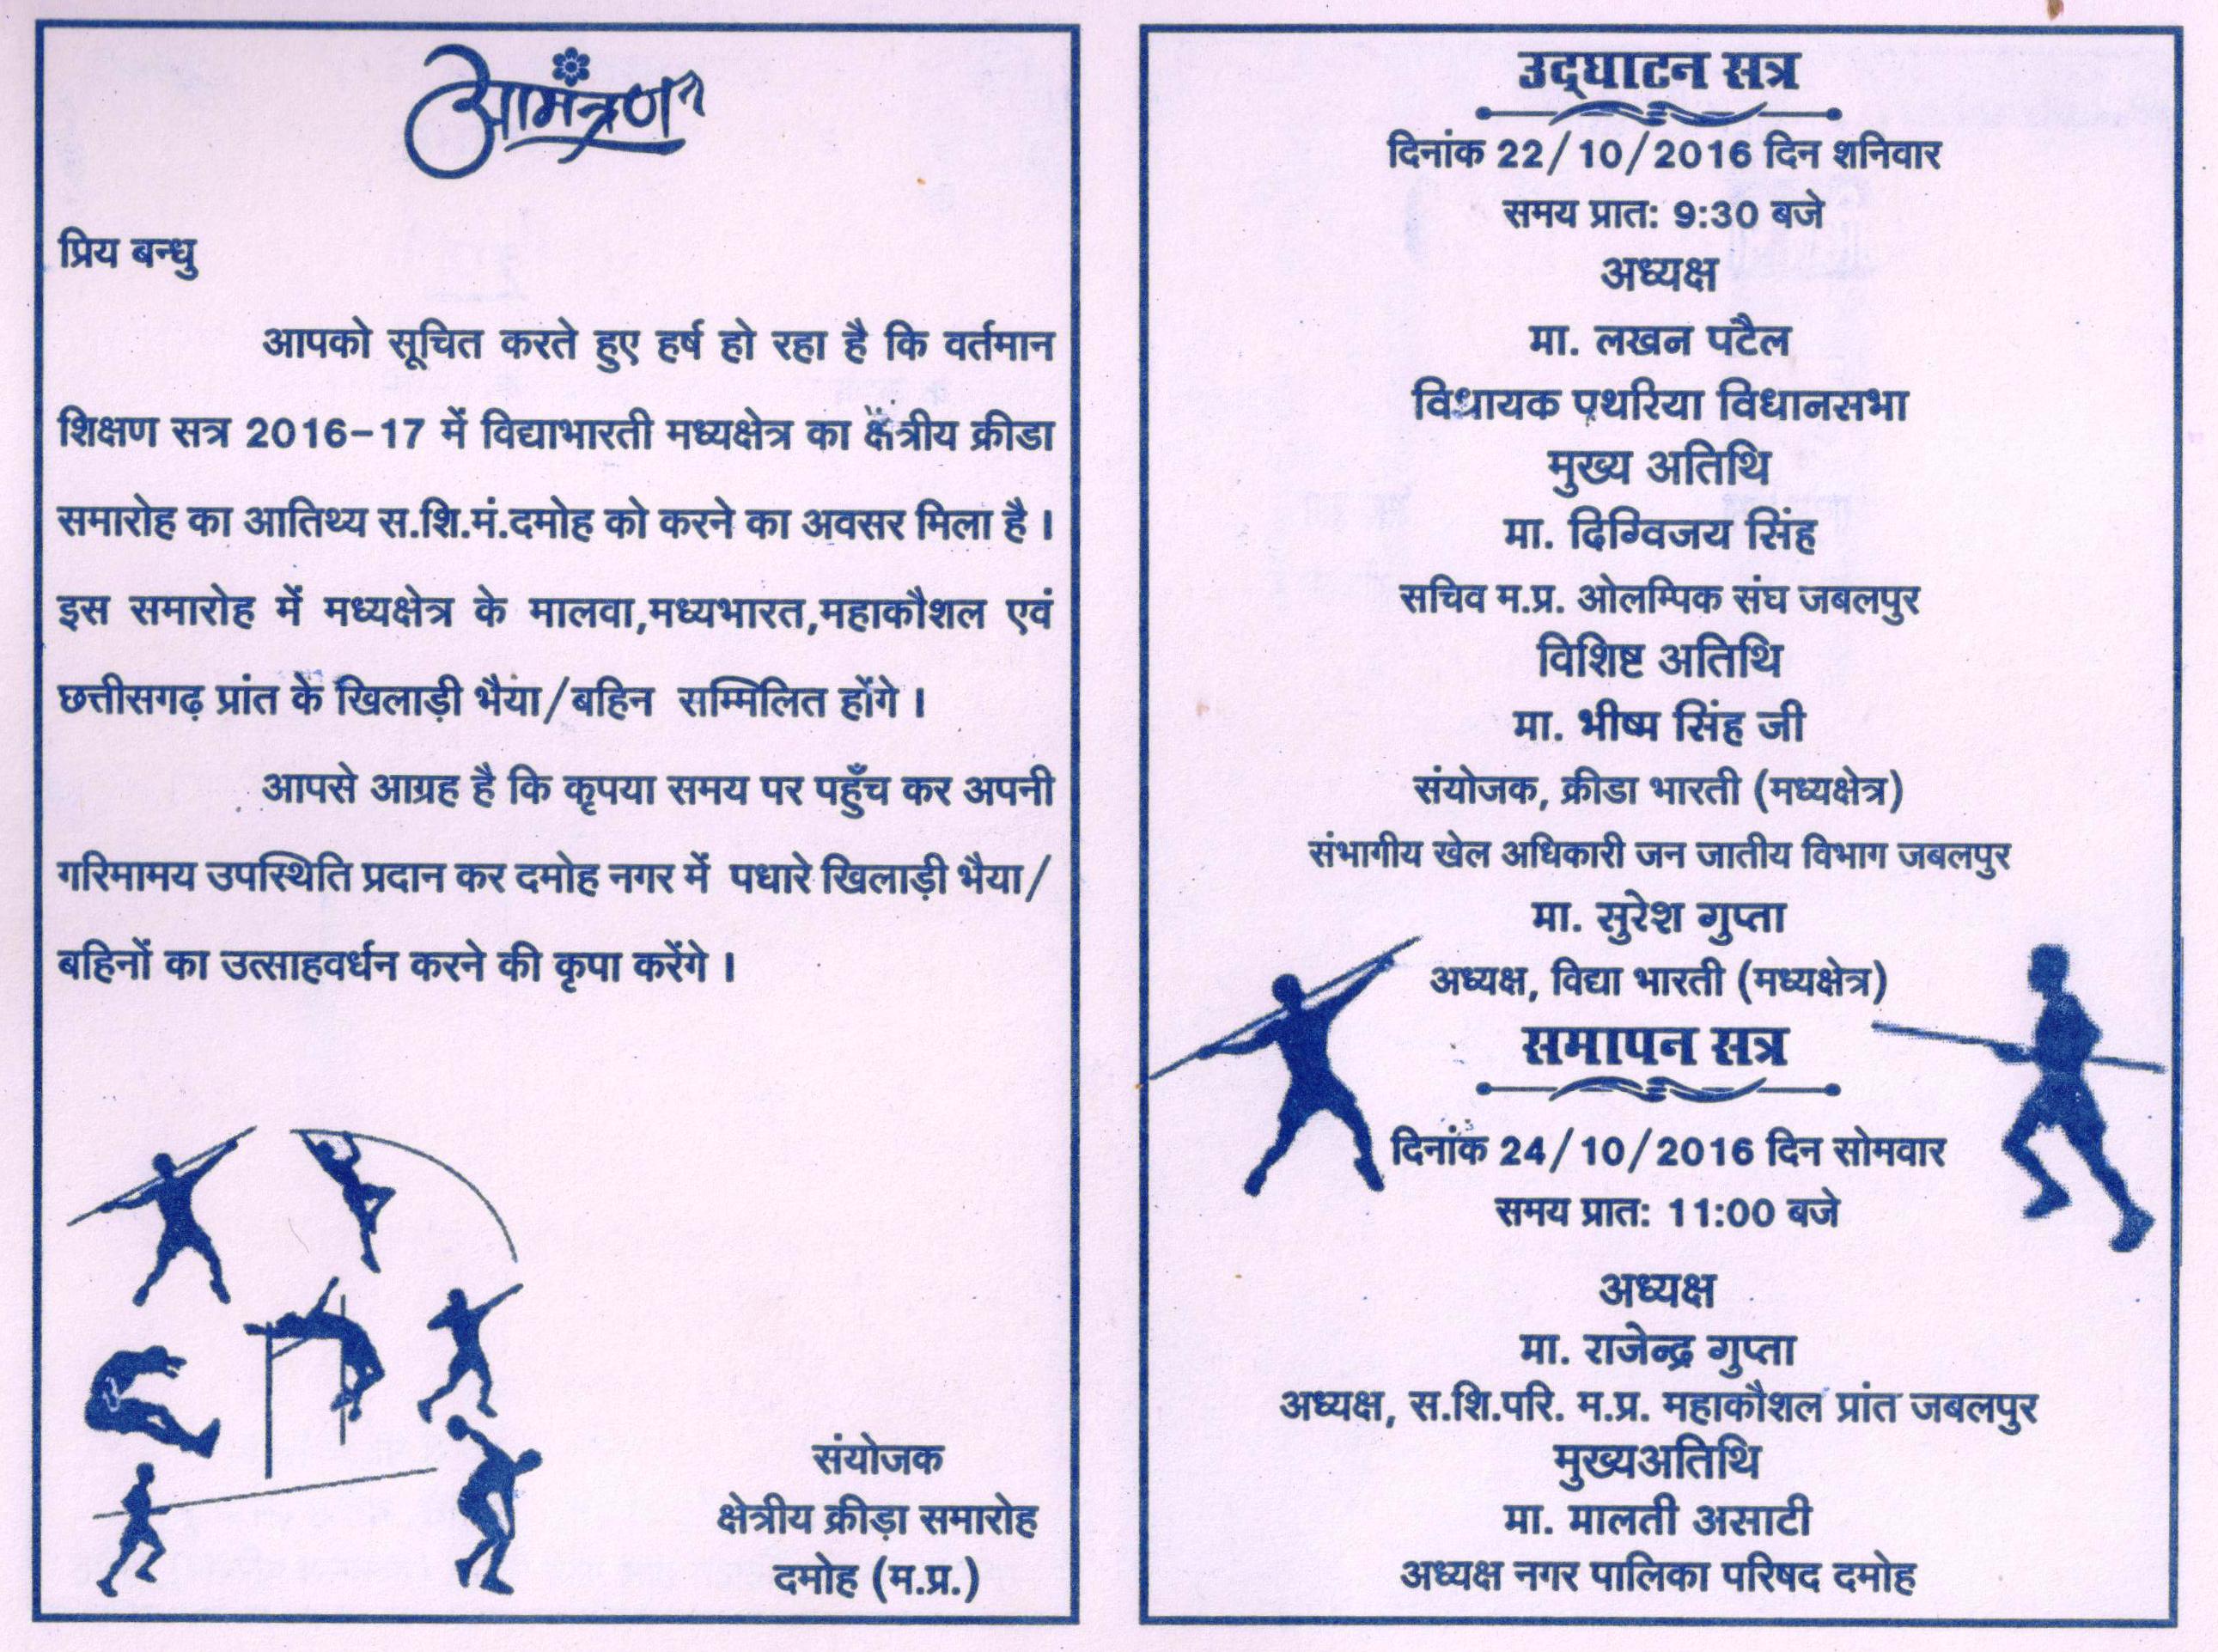 आमंत्रण
प्रिय बन्धु
आपको सूचित करते हुए हर्ष हो रहा है कि वर्तमान
शिक्षण सत्र 2016-17 में विद्याभारती मध्यक्षेत्र का क्षेत्रीय क्रीडा
समारोह का आतिथ्य स.शि.मं.दमोह को करने का अवसर मिला है ।
इस समारोह में मध्यक्षेत्र के मालवा,मध्यभारत,महाकौशल एवं
छत्तीसगढ़ प्रांत के खिलाड़ी भैया/बहिन सम्मिलित होंगे ।
आपसे आग्रह है कि कृपया समय पर पहुँच कर अपनी
गरिमामय उपस्थिति प्रदान कर दमोह नगर में पधारे खिलाड़ी भैया/
बहिनों का उत्साहवर्धन करने की कृपा करेंगे ।
संयोजक
क्षेत्रीय क्रीड़ा समारोह
दमोह (म.प्र.)
उद्घाटन सत्र
दिनांक 22/10/2016 दिन शनिवार
समय प्रात: 9:30 बजे
अध्यक्ष
मा. लखन पटैल
विधायक पथरिया विधानसभा
मुख्य अतिथि
मा. दिग्विजय सिंह
सचिव म.प्र. ओलम्पिक संघ जबलपुर
विशिष्ट अतिथि
मा. भीष्म सिंह जी
संयोजक, क्रीडा भारती (मध्यक्षेत्र)
संभागीय खेल अधिकारी जन जातीय विभाग जबलपुर
मा. सुरेश गुप्ता
अध्यक्ष, विद्या भारती (मध्यक्षेत्र)
समापन सत्र
दिनांक 24/10/2016 दिन सोमवार
समय प्रात: 11:00 बजे
अध्यक्ष
मा. राजेन्द्र गुप्ता
अध्यक्ष, स.शि.परि. म.प्र. महाकौशल प्रांत जबलपुर
मुख्यअतिथि
मा. मालती असाटी
अध्यक्ष नगर पालिका परिषद दमोह